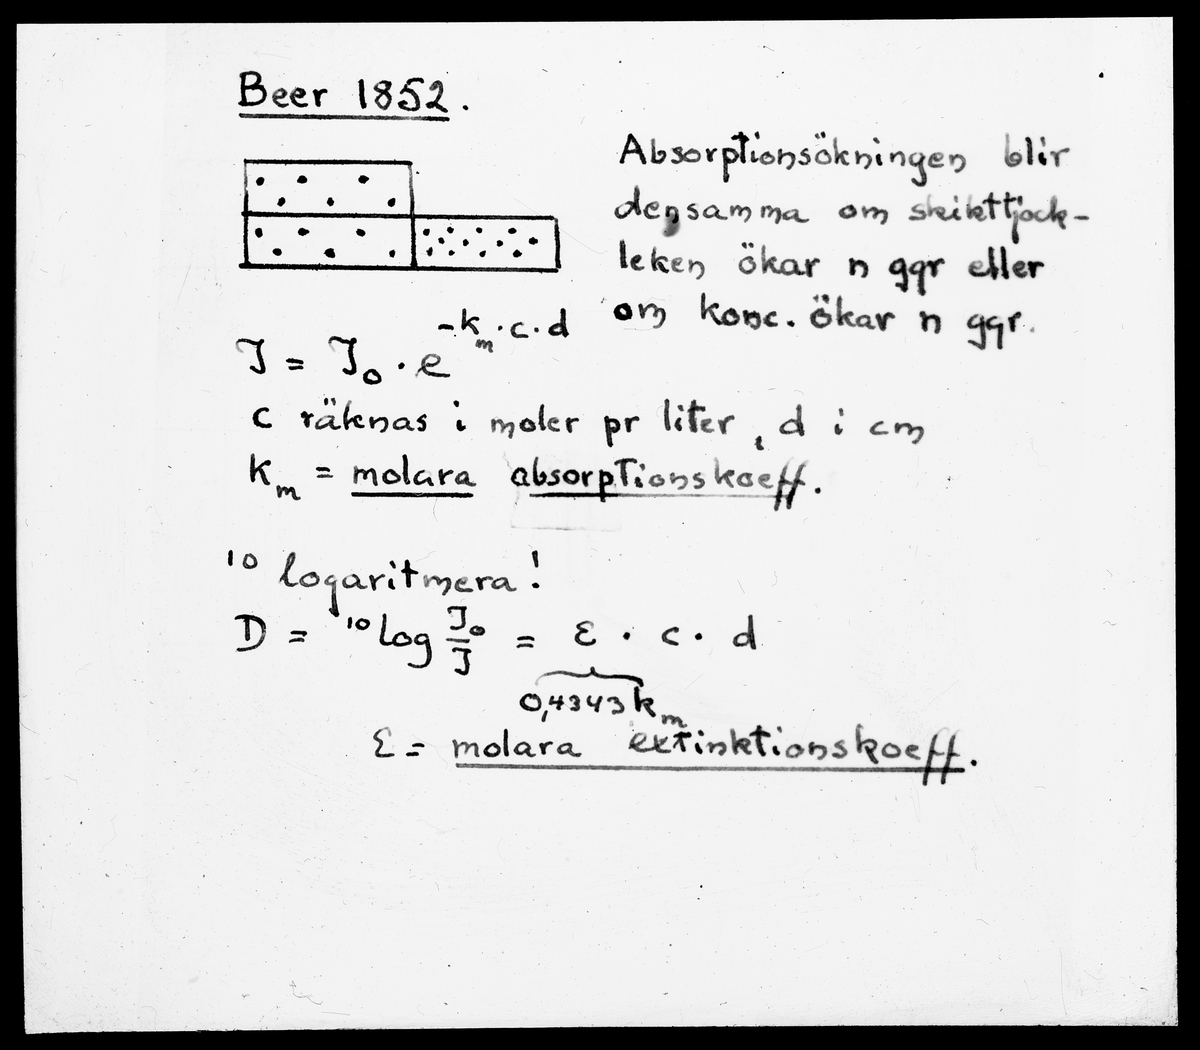 Beer 1852.
Absorptionsökningen blir
densamma om skikttjock-
leken ökar n ggr eller
om konc. ökar n ggr.
J = J₀ · e^(-kₘ · c · d)
c räknas i moler pr liter, d i cm
kₘ = molara absorptionskoeff.
¹⁰ logaritmera!
D = ¹⁰log J₀/J = ε · c · d
0,4343 kₘ
ε = molara extinktionskoeff.